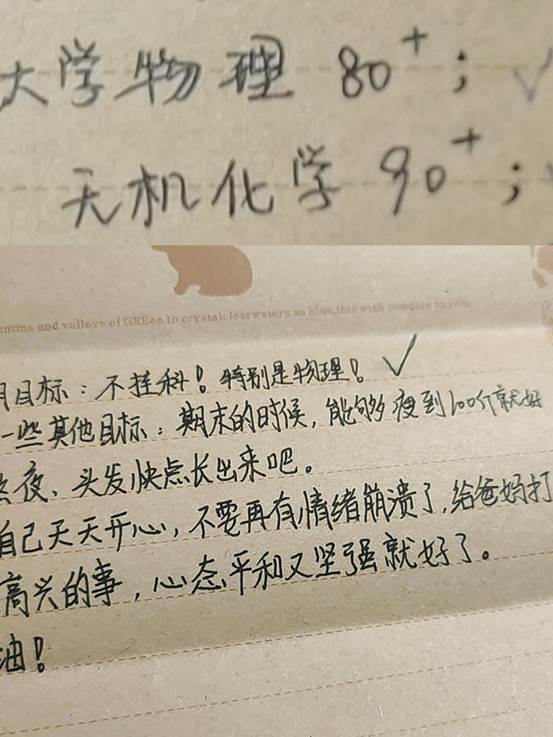 大学物理 80+;
无机化学 90+;
untins and valleys of GREen to crystalclearwaters so blue,this wish comeing to you.
月目标：不挂科！特别是物理！
一些其他目标：期末的时候，能够瘦到100斤就好
熬夜、头发快点长出来吧。
自己天天开心，不要再有情绪崩溃了，给爸妈打
高兴的事，心态平和又坚强就好了。
油！